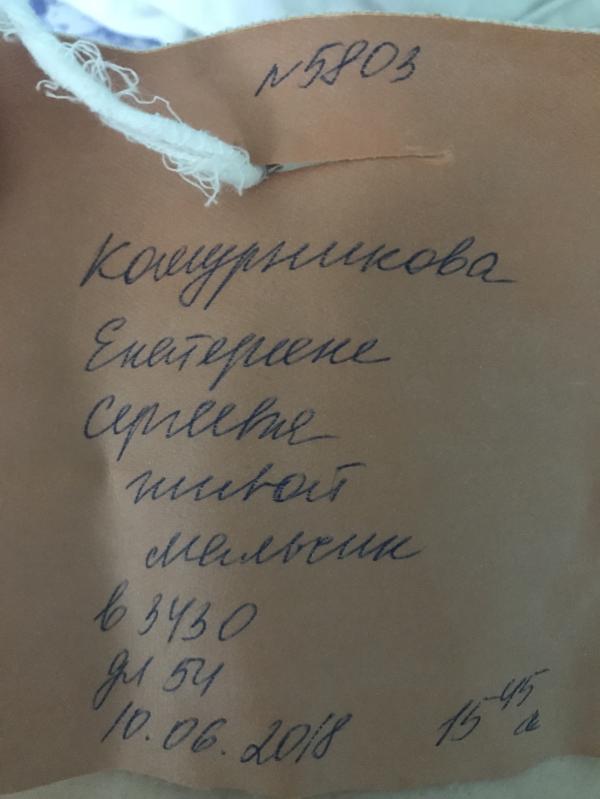 N5803
Комурникова
Екатерина
Сергеевна
живой
мальчик
в 3430
дл 54
10.06.2018 15-45